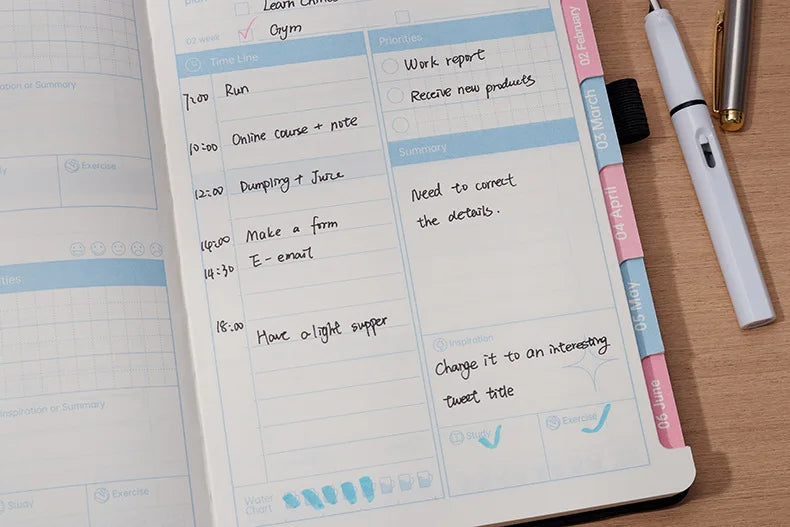 Learn Chinese
02 week
Gym
Time Line
7:00 Run
10:00 Online course + note
12:00 Dumpling + Juice
14:00 Make a form
14:30 E-mail
18:00 Have a light supper
Water Chart
Priorities
Work report
Receive new products
Summary
Need to correct
the details.
Inspiration
Change it to an interesting
tweet title
Study
Exercise
02 February
03 March
04 April
05 May
06 June
or Summary
Exercise
Inspiration or Summary
Study
Exercise